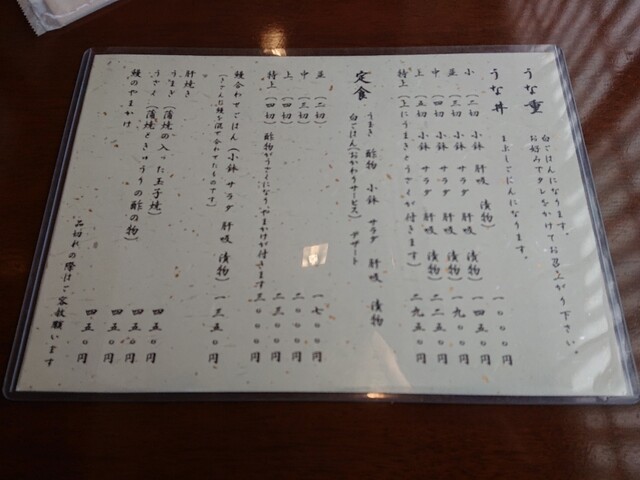 うな重
白ごはんになります。
お好みでタレをかけてお召上がり下さい。
うな丼
まぶしごはんになります。
小 (二切 小鉢 肝吸 漬物) 一〇〇〇円
並 (三切 小鉢 サラダ 肝吸 漬物) 一四五〇円
中 (四切 小鉢 サラダ 肝吸 漬物) 一九〇〇円
上 (五切 小鉢 サラダ 肝吸 漬物) 二二五〇円
特上 (上にうまきとうざくが付きます) 二九五〇円
定食
うまき 酢物 小鉢 サラダ 肝吸 漬物
白ごはん(おかわりサービス) デザート
並 (二切) 一七〇〇円
中 (三切) 二〇〇〇円
上 (四切)
特上 (四切) 酢物がうざくになりやまかけが付きます 三〇〇〇円
鰻合わせごはん (小鉢 サラダ 肝吸 漬物) 一三五〇円
(きざんだ鰻を混ぜ合わせたものです)
肝焼き 四五〇円
うまき (蒲焼の入った玉子焼) 四五〇円
うざく (蒲焼ときゅうりの酢の物) 四五〇円
鰻のやまかけ 四五〇円
品切れの際はご容赦願います